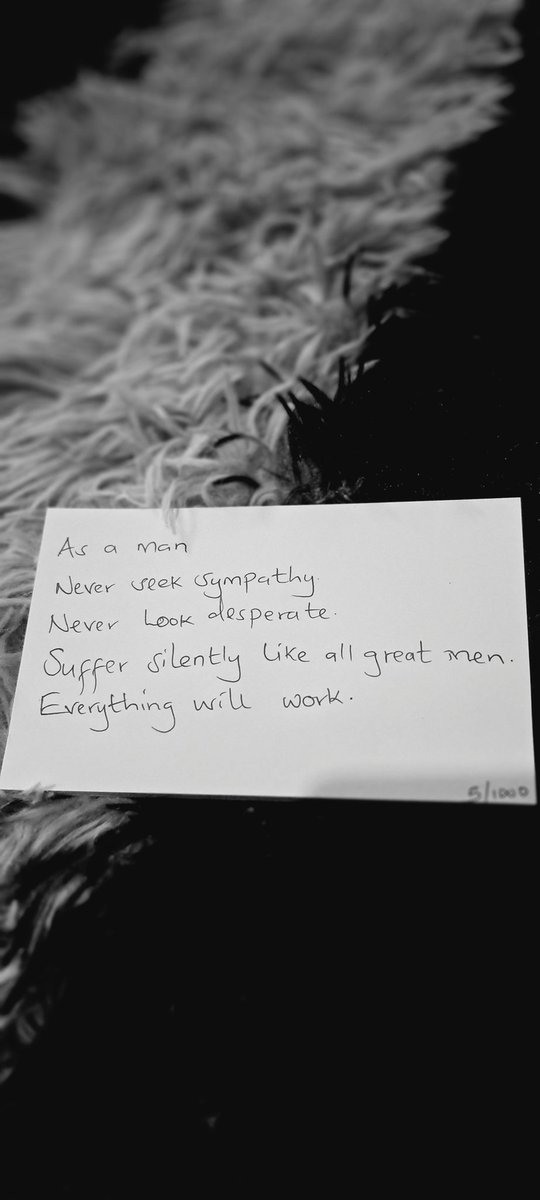 As a man
Never seek sympathy.
Never Look desperate.
Suffer silently like all great men.
Everything will work.
5/1000